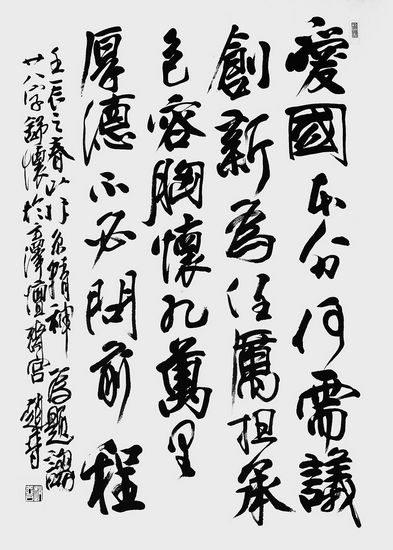 愛國本分何需議
創新為任厲担承
包容胸懷九萬里
厚德不必問前程
壬辰之春以北京精神為題謅
廿八字舒懷於方澤壇齋宮